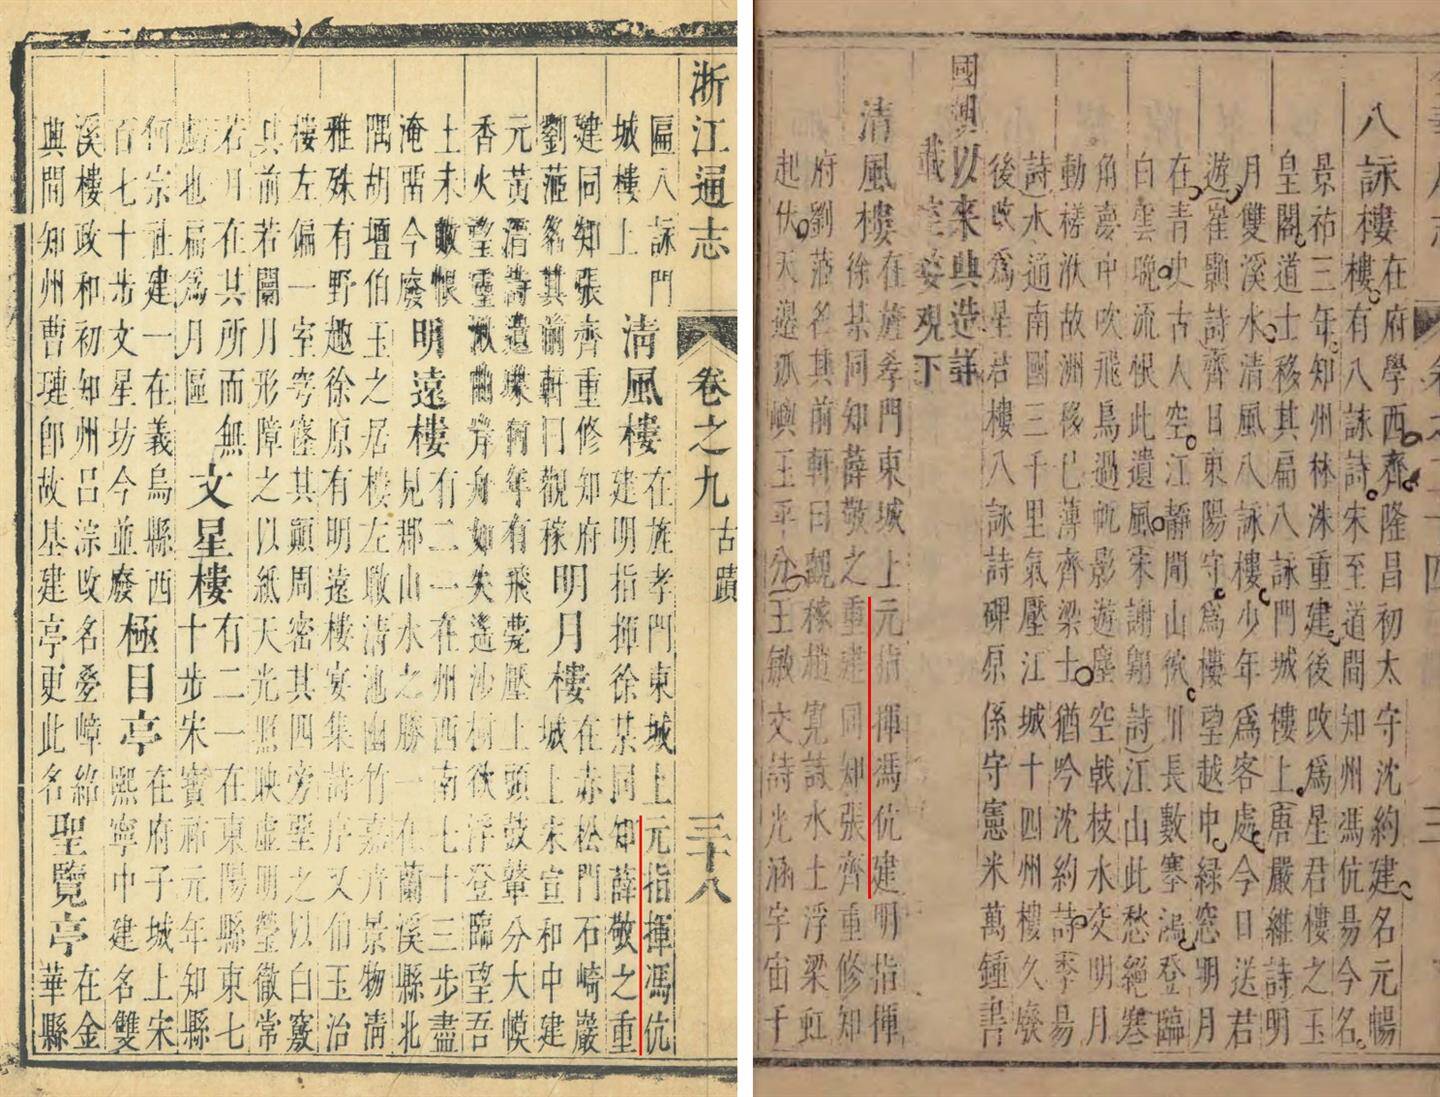 浙江通志 卷之九 古蹟 三十八
匾八詠門 清風樓 在旌孝門東城上元指揮馮伉
城樓上 建明指揮徐某同知薛敬之重
建同知張齊重修知府 明月樓 在赤松門石崎巖
劉蒞名其前軒曰觀稼 城上宋宣和中建
元黃溍詩遺堞何年有飛甍壓上頭鼓鼙分大幙
香火望靈湫幽岸舟如失遙沙樹欲浮登臨望吾
土未敢恨 明遠樓 有二一在州西南七十三步盡
淹留今廢 見郡山水之勝一在蘭溪縣北
隅胡壇伯玉之居樓左墩清池幽竹嘉卉景物清
雅殊有野趣徐原有明遠樓宴集詩序又伯玉治
樓左偏一室穹窿其顛周密其四旁堊之以白竅
其前若關月形障之以紙天光照映虛明瑩徹常
若月在其所而無 文星樓 有二一在東陽縣東七
虧也扁爲月區 十步宋寳祐元年知縣
何宗社建一在義烏縣西 極目亭 在府子城上宋
百七十步文星坊今並廢 熙寧中建名雙
溪樓政和初知州呂淙改名疊嶂紹 聖覽亭 在金
興間知州曹璉卽故基建亭更此名 華縣
八詠樓 在府學西齊隆昌初太守沈約建名元暢
樓有八詠詩宋至道間知州馮伉易今名
景祐三年知州林洙重建後改爲星君樓之玉
皇閣道士移其扁八詠門城樓上唐嚴維詩明
月雙溪水清風八詠樓少年爲客處今日送君
遊崔顥詩齊日東陽守爲樓望越中綠窓明月
在青史古人空江靜聞山狖川長數塞鴻登臨
白雲晚流恨此遺風宋謝翺詩江山此愁絕寒
角慶中吹飛鳥過帆影遊塵空戟枝水交明月
動槎洑故洲移已薄齊梁士猶吟沈約詩季易
詩水通南國三千里氣壓江城十四州樓久廢
後改爲星君樓八詠詩碑原係守憲米萬鍾書
國朝以來興造詳
載室婺觀下
清風樓 在旌孝門東城上元指揮馮伉建明指揮
徐某同知薛敬之重建同知張齊重修知
府劉蒞名其前軒曰觀稼趙寬詩水土浮梁虹
起伏天邊孤嶼玉平分王敏交詩光涵宇宙千